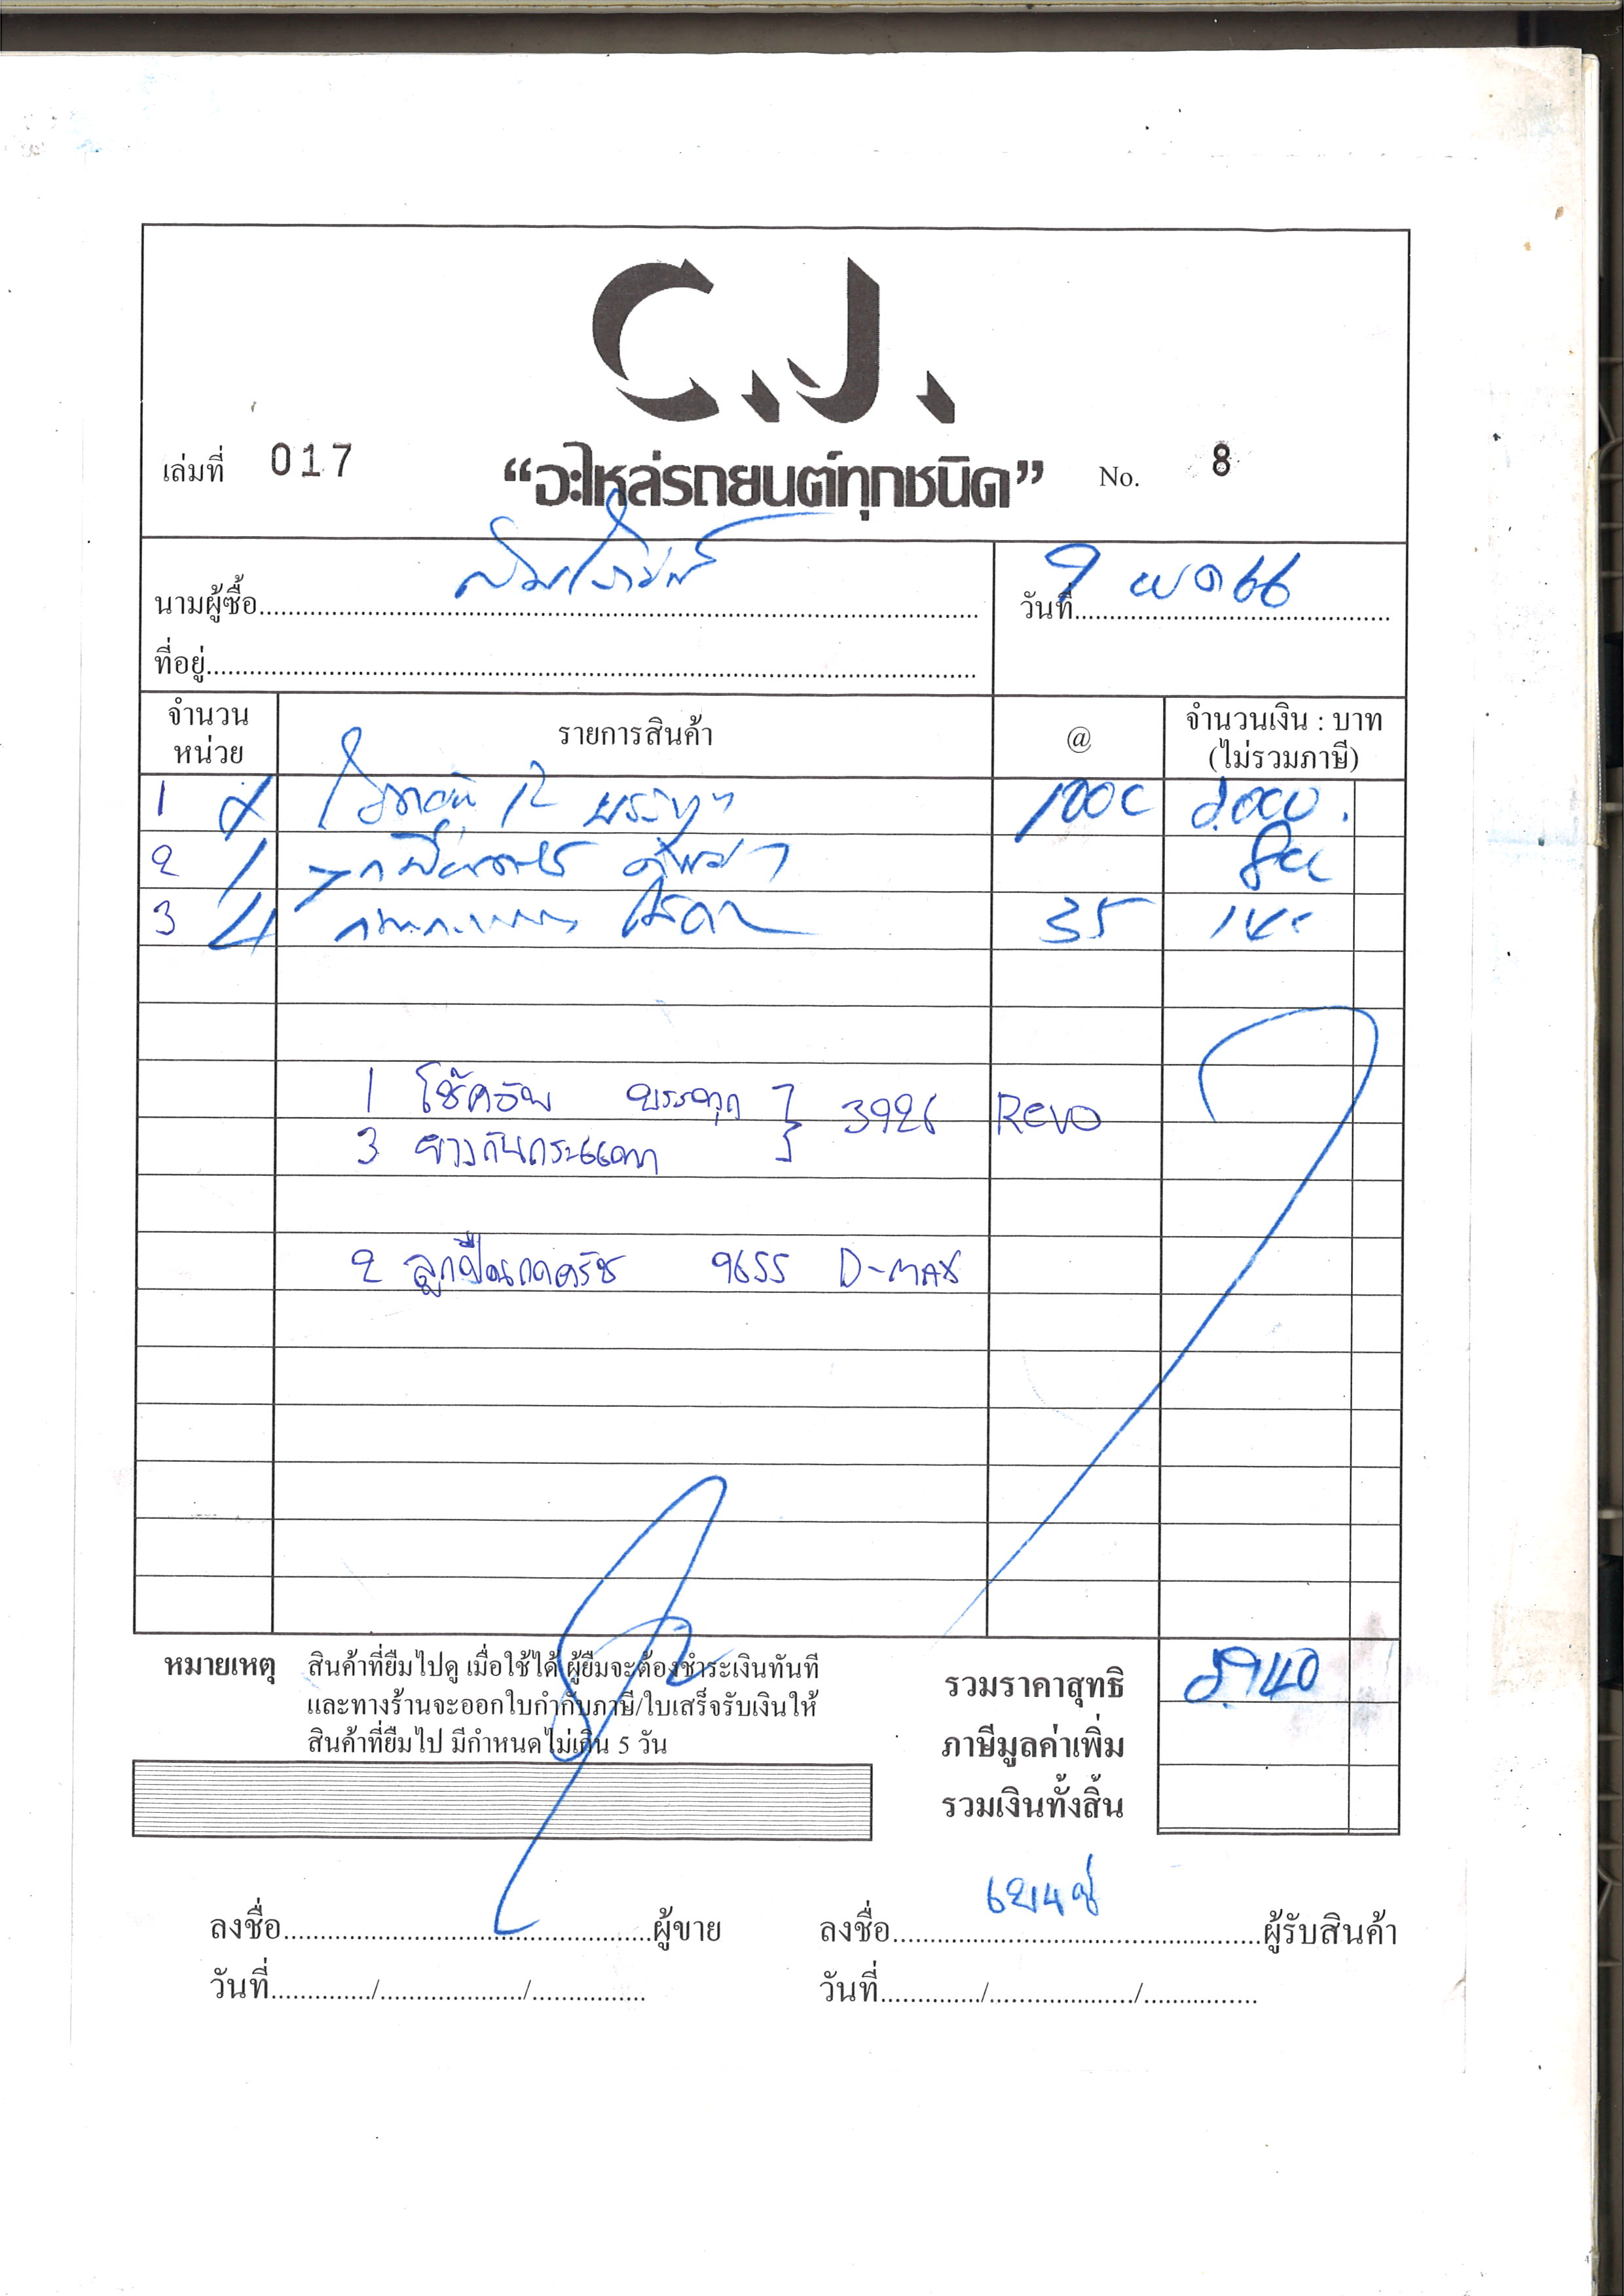 C.J.
เล่มที่ 017 “อะไหล่รถยนต์ทุกชนิด” No. 8
นามผู้ซื้อ
วันที่ 9 พค 66
ที่อยู่
จำนวน หน่วย รายการสินค้า @ จำนวนเงิน : บาท (ไม่รวมภาษี)
1 2 1000 2,000
2 1
3 4 35 140
1 โช๊คอัพ บรรทุก } 3926 Revo
3 ยางกันกระแทก
2 ลูกปืนกดครัช 9655 D-MAX
หมายเหตุ สินค้าที่ยืมไปดู เมื่อใช้ได้ ผู้ยืมจะต้องชำระเงินทันที
และทางร้านจะออกใบกำกับภาษี/ใบเสร็จรับเงินให้
สินค้าที่ยืมไป มีกำหนดไม่เกิน 5 วัน
รวมราคาสุทธิ 2,940
ภาษีมูลค่าเพิ่ม
รวมเงินทั้งสิ้น
ลงชื่อ ผู้ขาย ลงชื่อ ผู้รับสินค้า
วันที่ / / วันที่ / /